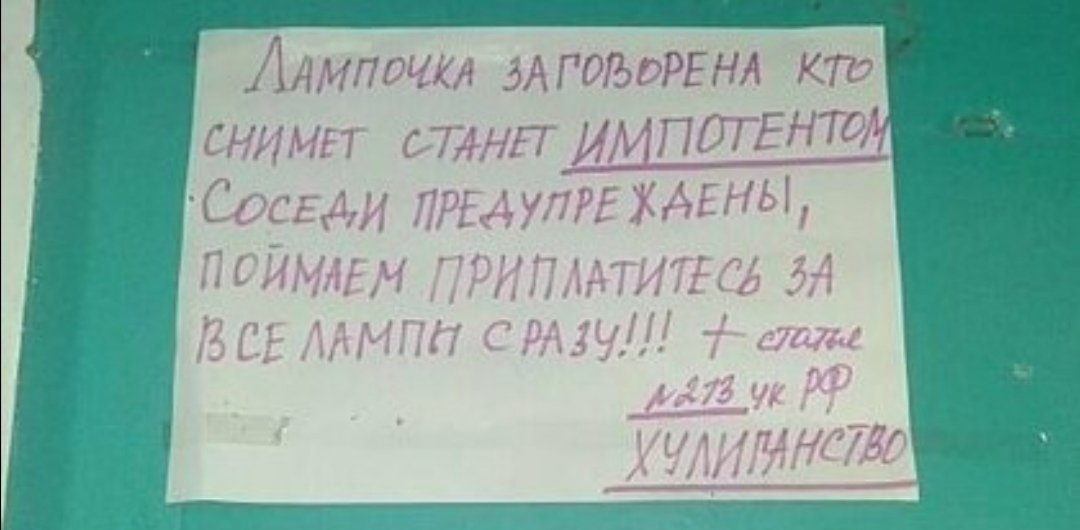 Лампочка заговорена кто
снимет станет импотентом
Соседи предупреждены,
поймаем приплатитесь за
все лампы сразу!!! + статье
№213 ук РФ
хулиганство